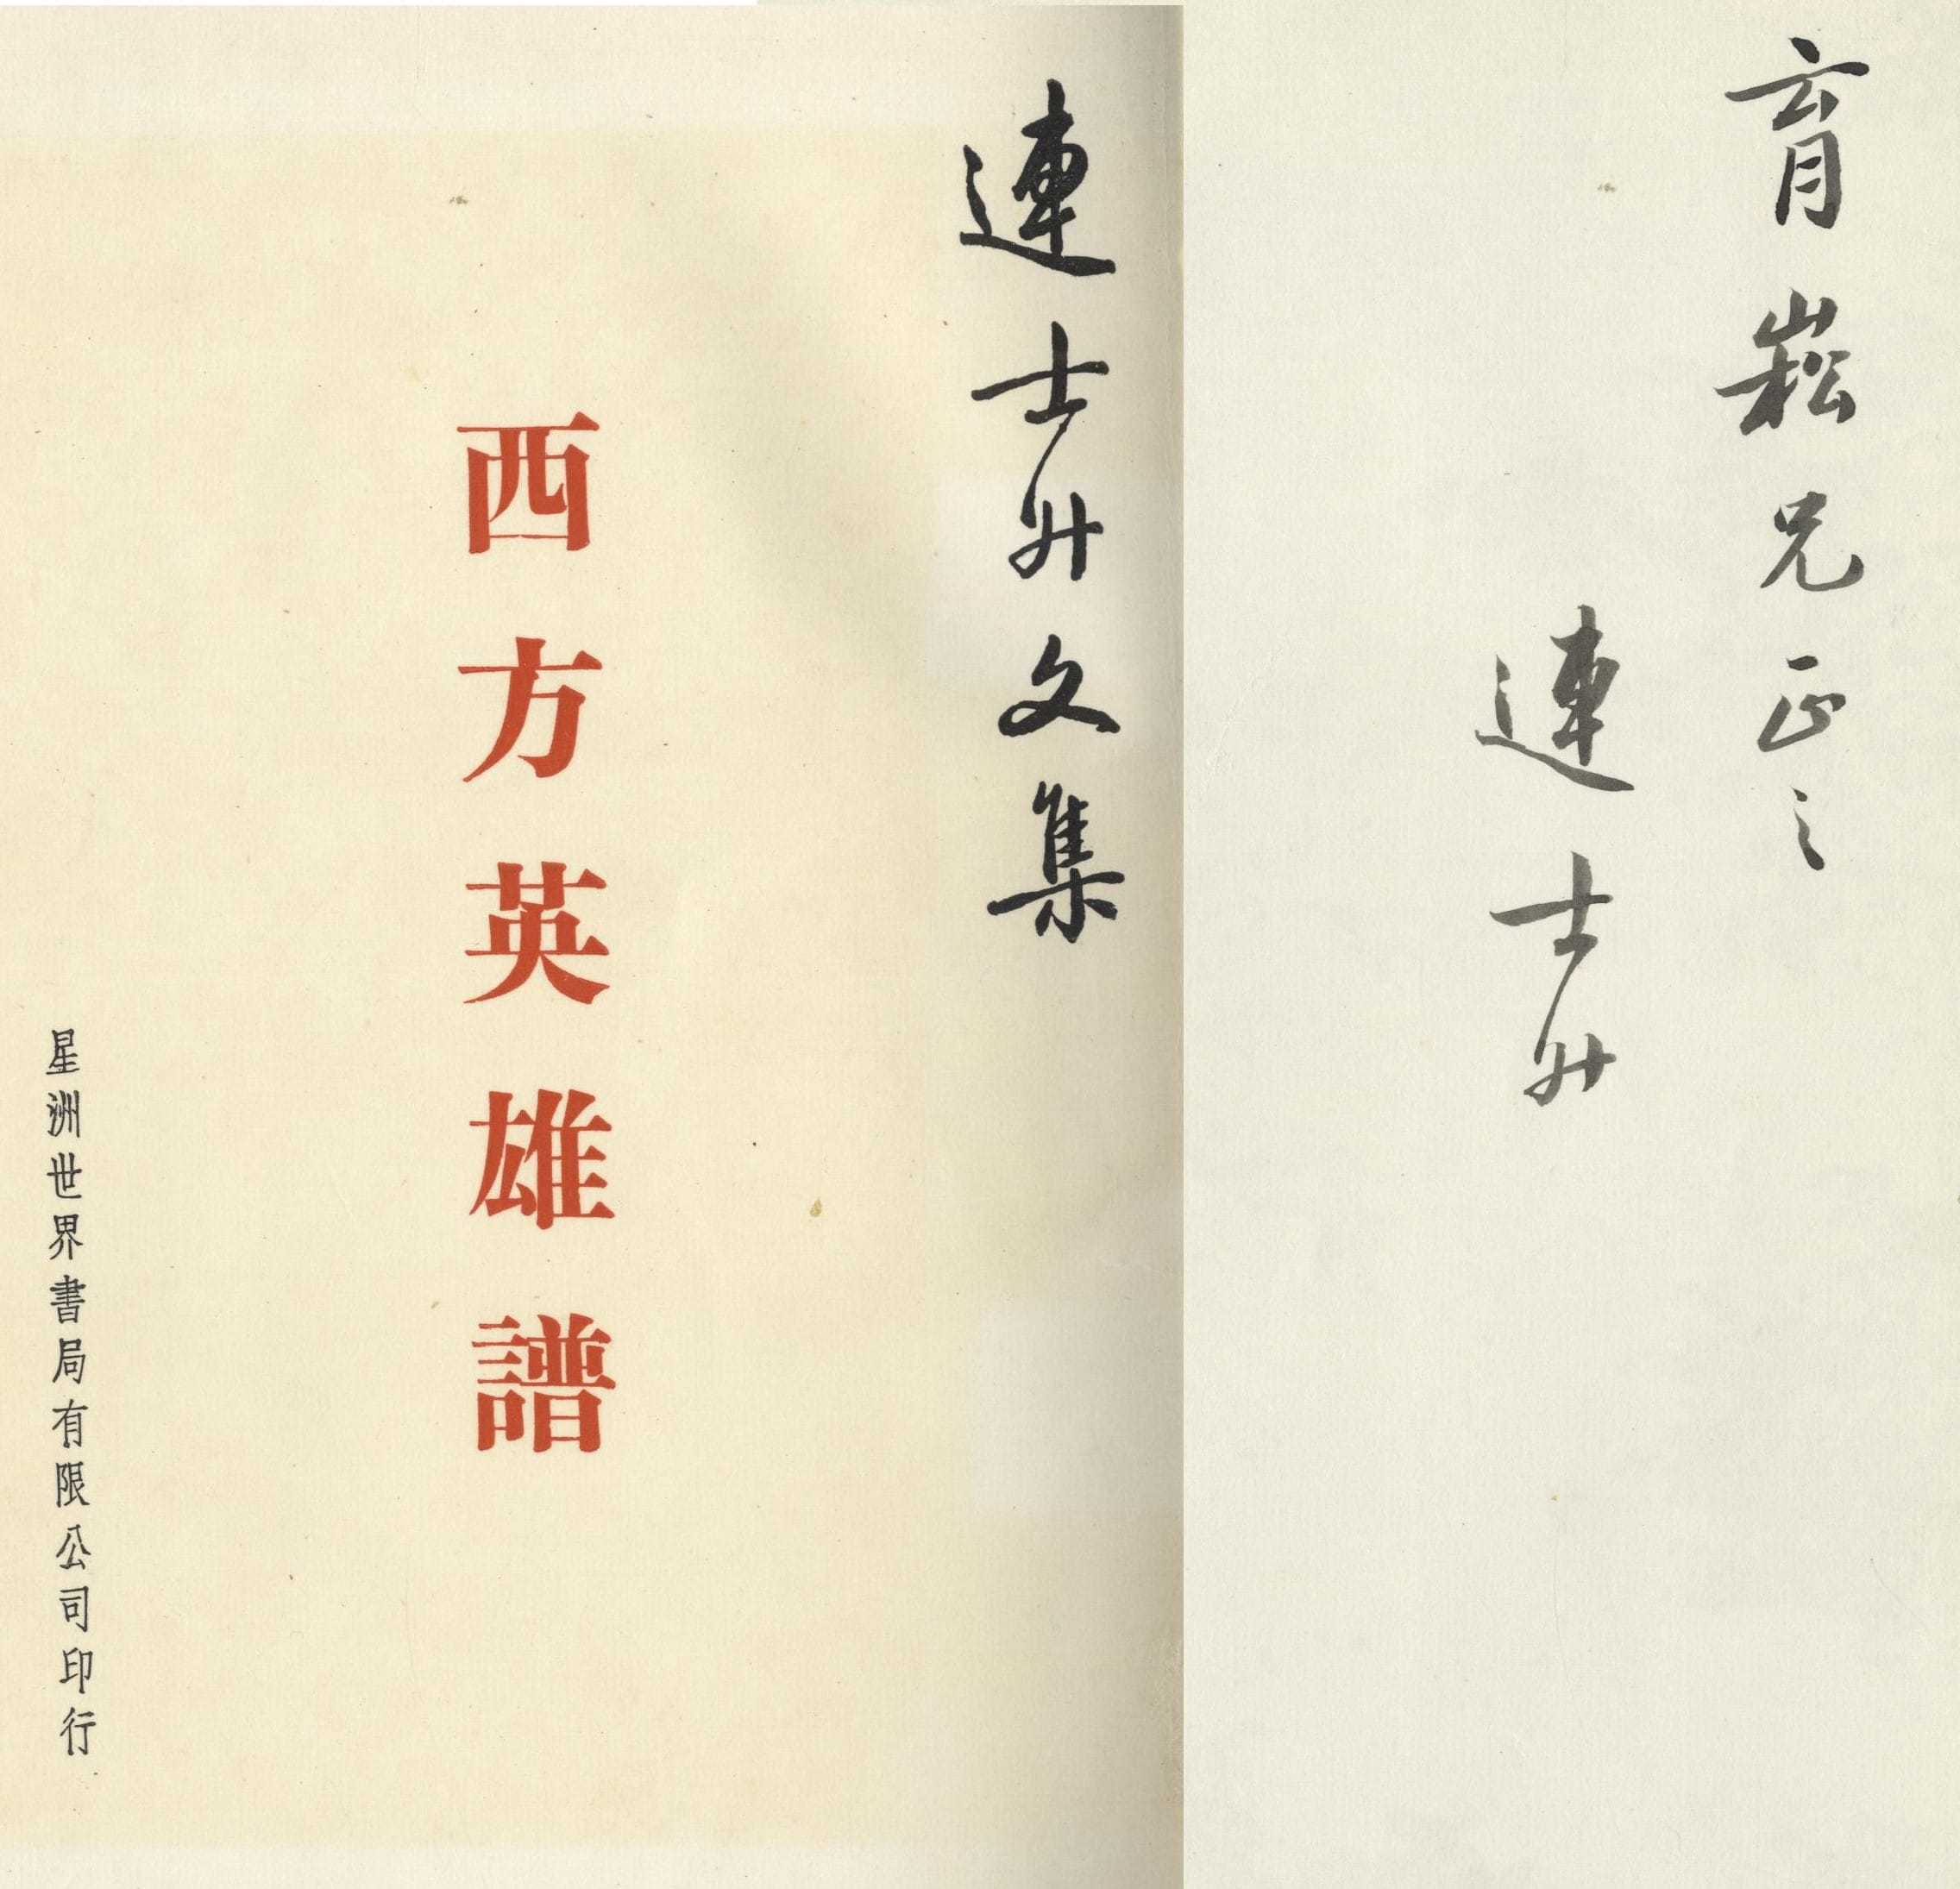 育崧兄正之
連士升
連士升文集
西方英雄譜
星洲世界書局有限公司印行